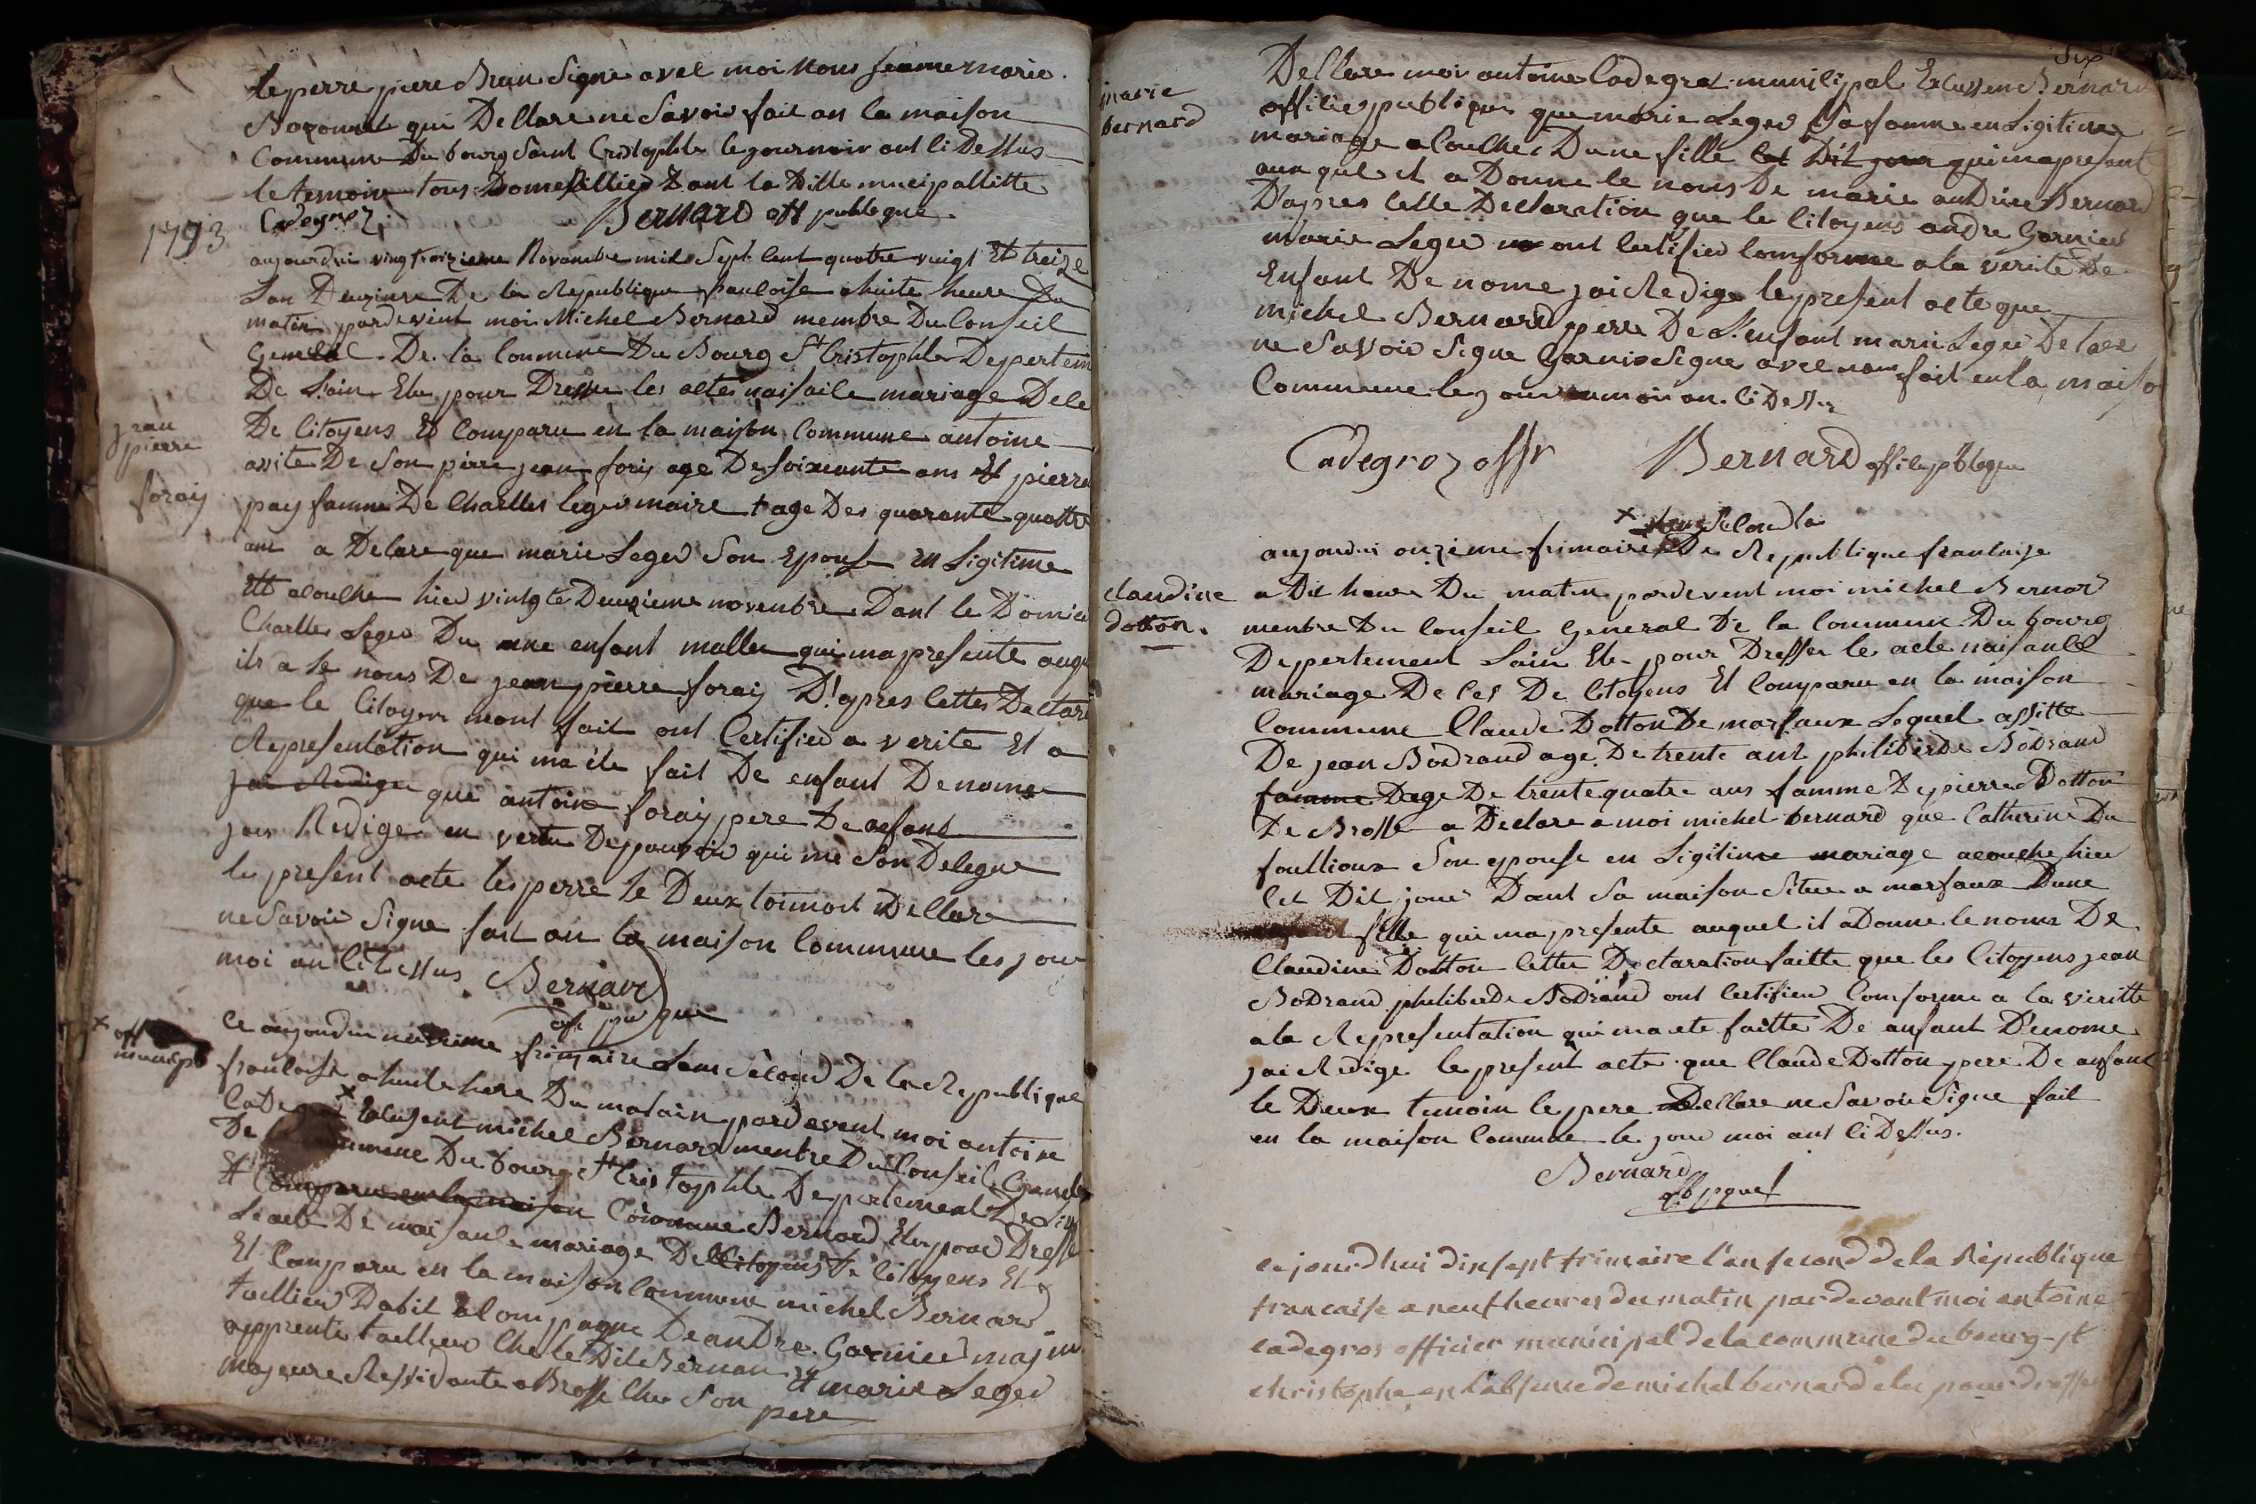 le perre piere Brun Signe avel moi nous jeanne marie
Bozonnet qui Dellare ne Savoir fait an la maison
Commune Du bourg Saint Cristophle le jour moir ant li Dessus
le temoin tous Domesillier Dant la Ditte municipallitte
Bernard off publeque
1793
aujourdui vingtroizieme Novambre mil Sept Cent quatre vuigt Et treize
Lan Deuzieme De la Republique franloise a huite heure Du
matin pardevent moi Michel Bernard membre Du Conseil
General De la Commune Du Bourg St Cristophle Depertem
De Lain Elu pour Dresse les altes naisaile mariage De le
De Citoyens Et Comparu en la maison Commune antoine
jean
pierre
foray
assite De Son pirre jean foris age De soixante ans Et pierre
pay famme De Charlles leger maire + age Des quarante quattre
ans a Delare que marie Leger Son Epouse En Ligitime
Et acoulhe hier vintgte Deuzieme novembre Dant le Domice
Charlles Leger Du une enfant malle qui ma presente auqu
ils a le nous De jean pierre foray D'apres lettes Declara
que le Citoyen mont fait ont Certifier a verite Et a
Representation qui ma éte fait De enfant De nomer
jai Rediger que antoine foray pere De enfant
jais Rediger en vertu De pouvoir qui me Son Delegue
le present acte les perre le Deux toimoit Dellare
ne Savoir Signe fait an la maison Commune les jour
moi an li Dessus Bernard
off pu que
+ off
municipe
Ce aujourdui neuvieme frimaire Lan Second De la Republique
franloise a huite here Du matain pardevent moi antoine
Cade + Elabsent michel Bernard membre Du Conseil General
De mmune Du bourg St Cristophle Departement De Lin
Et Comparu en la maison Commune Bernard Elu pour Dresse
Le acte De naisanle mariage De Citoyens De Citoyens Et
Et Comparu en la maison Commune michel Bernard
taillier Dabit alompagne De andre Garnier majeur
apprenti taillieu Che le Dit Bernard Et marie Leger
majeure Ressidante a Brosse Cher Son pere
Six
marie
bernard
Dellare moi antoine Cadegrot munilipal Et lassen Bernard
offilier publique que marie Leger Sa famme en Ligitime
mariage a coulhe Dune fille let Dit jour qui ma presant
auxquel il a Donne le nous De marie andrine Bernard
D'apres lette Declaration que le Citoyens andre Garnier
marie Leger mont Certifier Comforme a la verite De
Enfant De nome jai Redige le present acte que
michel Bernard perre De L'enfant marie Leger Delare
ne Savoir Signe Garnier Signe avec nous fait en la maiso
Commune le jour moi an li Dessus
Cadegroz offr Bernard offile publeque
+ Lan Seconda
aujourdui onzieme frimaire + De Republique franlaize
claudine
dotton.
a Dit heure Du matin pardevent moi michel Bernard
menbre Du Conseil General De la Commune Du bourg
Depertement Lain Elu pour Dresser le acte naisanle
mariage De let De Citoyens Et Comparu en la maison
Commune Claude Dotton De marfaux Lequel assitte
De jean Bodrand age De trente ans philiberde Bodrand
famme Dage De trentequatre ans famme De pierre Dotton
De Brosse a Declare a moi michel bernard que Catherine Du
foullioux Son epouse en Ligitime mariage acouche hier
let Dit jour Dant Sa maison Situe a marfaux Dune
fille qui ma presente auquel il a Donne le nome De
Claudine Dotton lette Declaration faitte que les Citoyens jean
Bodrand philiberde Bodrand ont Certifier Comforme a la veritte
a la Representation qui ma ete faitte De anfant D'enome
jai Redige le present acte que Claude Dotton pere De anfant
le Deux temoin le pere Dellare ne Savoir Signe fait
en la maison Commune le jour moi ant li Dessus.
Bernard
off pque
cejourd'hui dixsept frimaire l'an second de la République
francaise a neuf heures du matin pardevant moi antoine
cadegros officier municipal de la commune du bourg-st
christophe en l'absence de michel bernard elu pour dresser